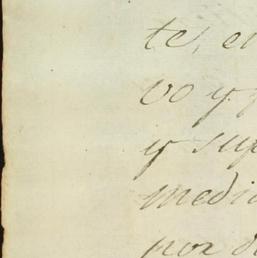 te, e
vo y
y sup
medi
por d